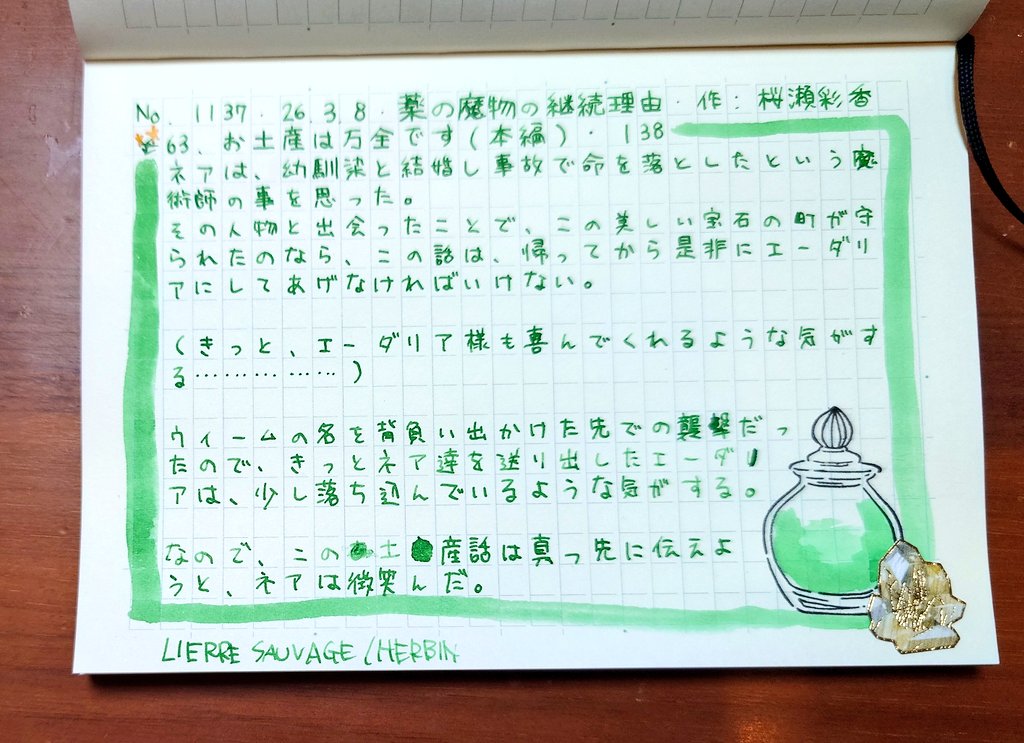 No. 1137. 26.3.8. 薬の魔物の継続理由. 作:桜瀬彩香
63. お土産は万全です(本編). 138
ネアは、幼馴染と結婚し事故で命を落としたという魔
術師の事を思った。
その人物と出会ったことで、この美しい宝石の町が守
られたのなら、この話は、帰ってから是非にエーダリ
アにしてあげなければいけない。
(きっと、エーダリア様も喜んでくれるような気がす
る…………… )
ウィームの名を背負い出かけた先での襲撃だっ
たので、きっとネア達を送り出したエーダリ
アは、少し落ち込んでいるような気がする。
なので、この土産話は真っ先に伝えよ
うと、ネアは微笑んだ。
LIERRE SAUVAGE / HERBIN